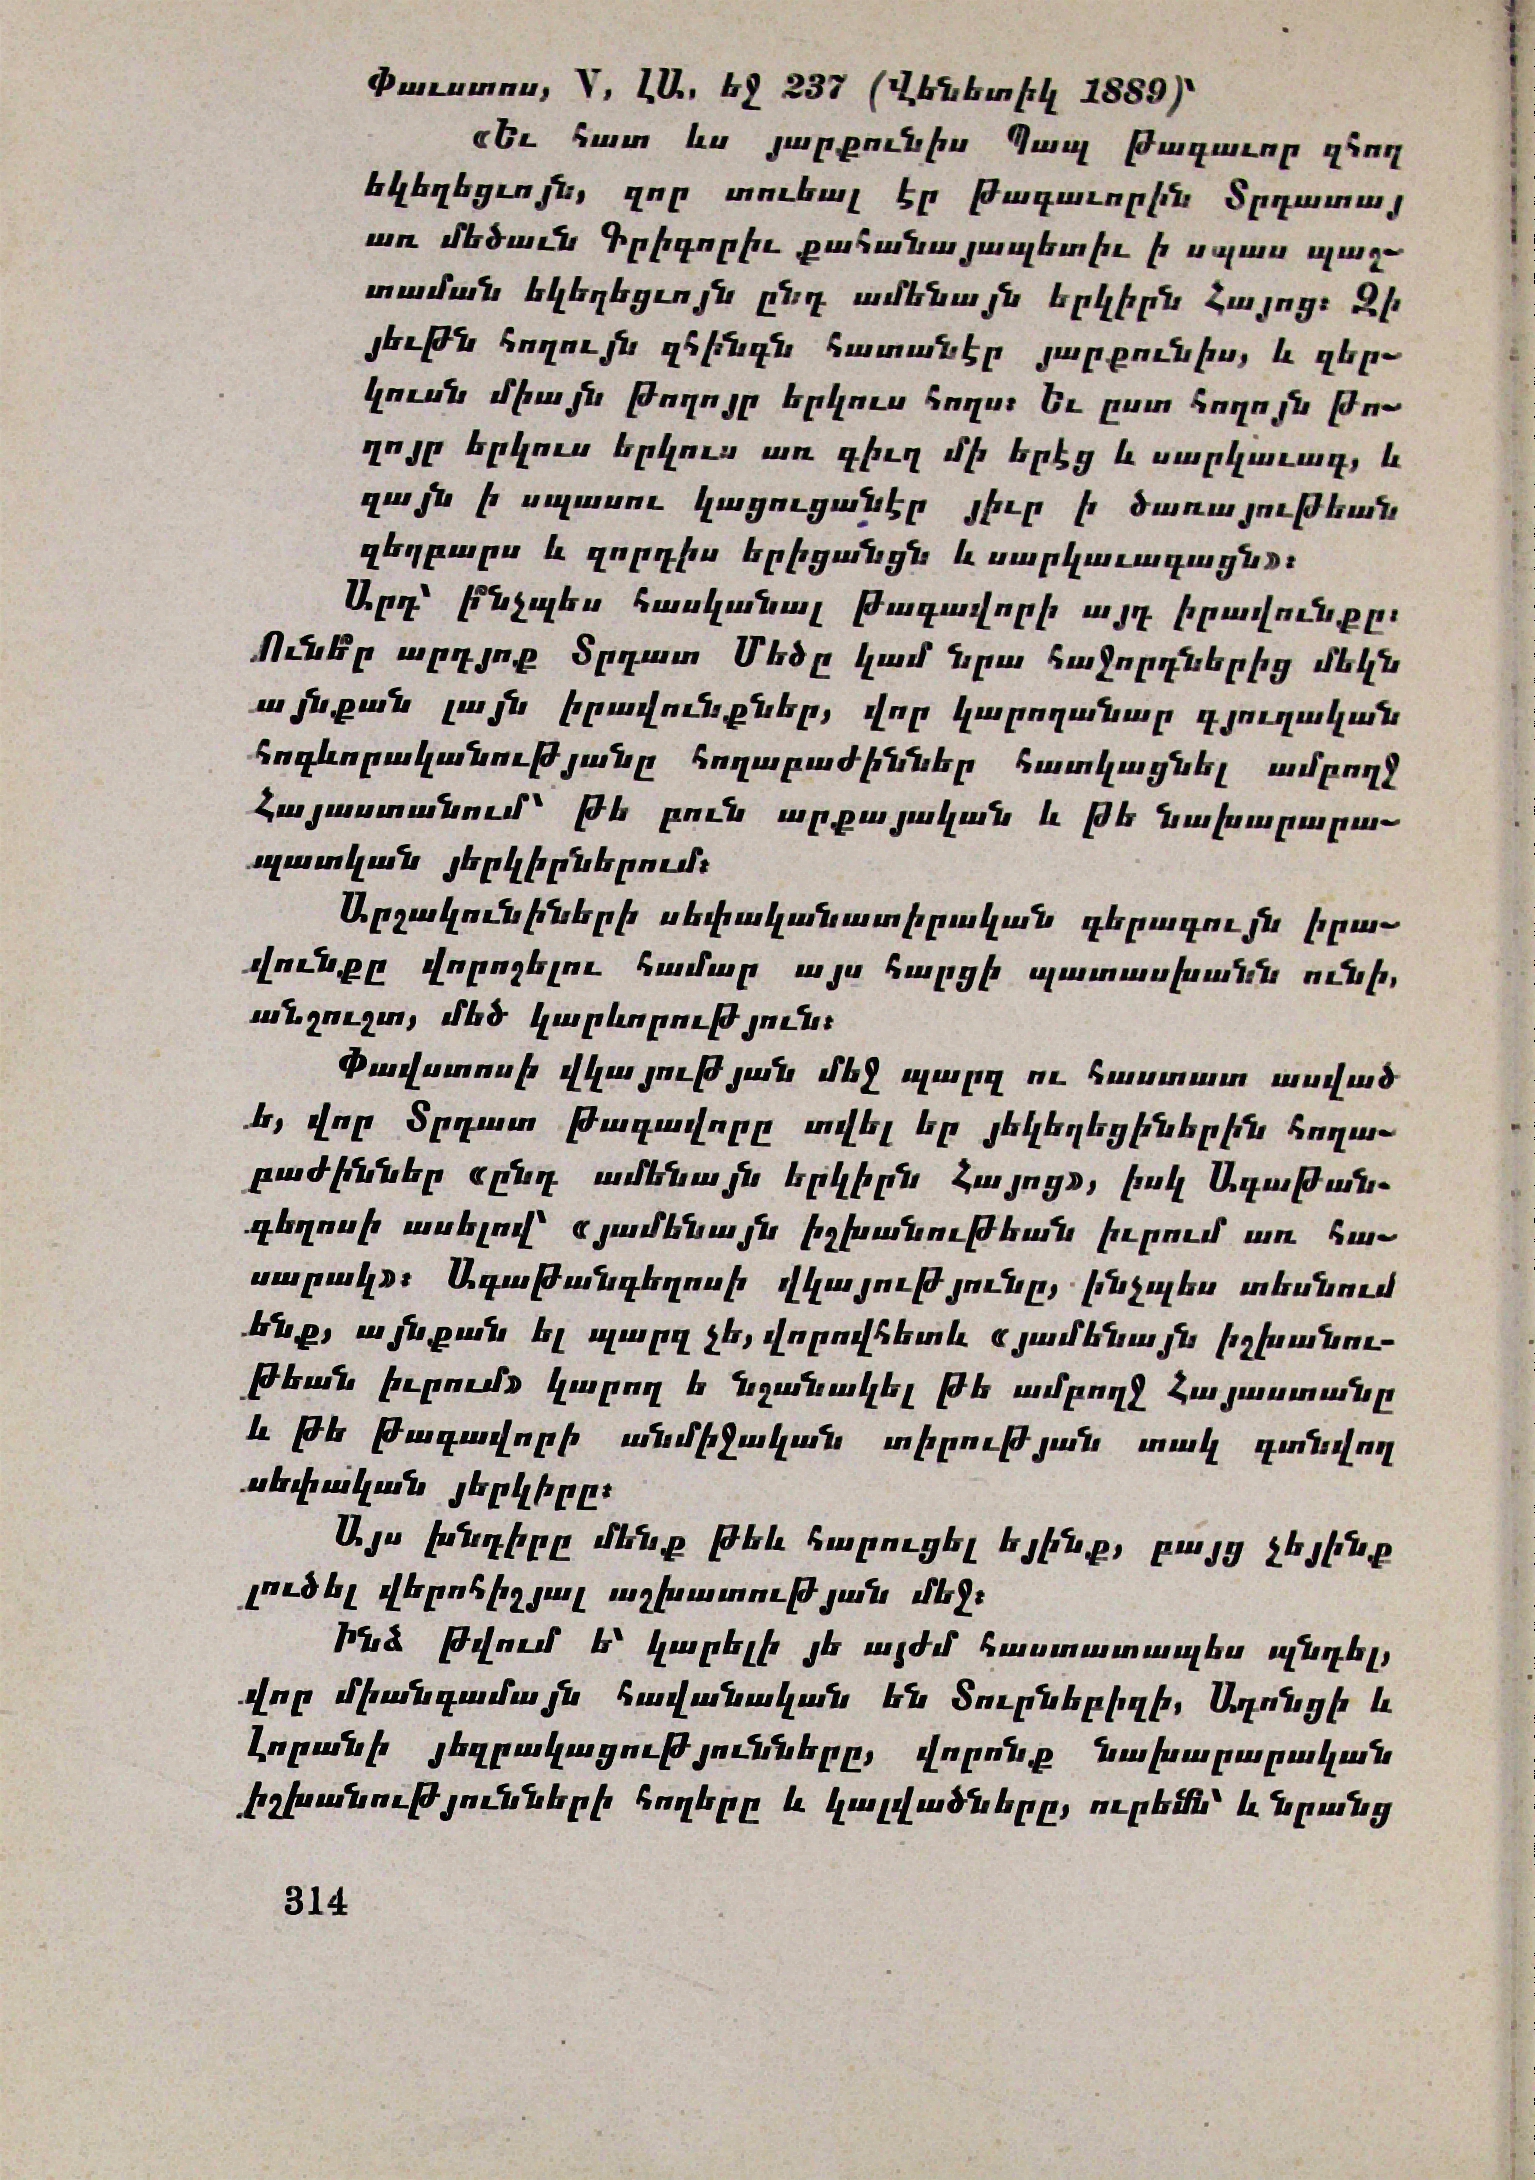 Փաւստոս, V, ԼԱ. եջ 237 (Վենետիկ 1889)՝
«Եւ հատ ևս յարքունիս Պապ թագաւոր զհող
եկեղեցւոյն, զոր տուեալ էր թագաւորին Տրդատայ
առ մեծաւն Գրիգորիւ քահանայապետիւ ի սպաս պաշ-
տաման եկեղեցւոյն ընդ ամենայն երկիրն Հայոց։ Զի
յեւթն հողոյն զհինգն հատանէր յարքունիս, և զեր-
կուսն միայն թողոյր երկուս հողս։ Եւ ըստ հողոյն թո-
ղոյր երկուս երկուս առ գիւղ մի երէց և սարկաւագ, և
զայն ի սպասու կացուցանէր յիւր ի ծառայութեան
զեղբարս և զորդիս երիցանցն և սարկաւագացն»։
Արդ՝ ի՞նչպես հասկանալ թագավորի այդ իրավունքը։
Ունե՞ր արդյոք Տրդատ Մեծը կամ նրա հաջորդներից մեկն
այնքան լայն իրավունքներ, վոր կարողանար գյուղական
հոգևորականությանը հողաբաժիններ հատկացնել ամբողջ
Հայաստանում՝ թե բուն արքայական և թե նախարարա-
պատկան յերկիրներում։
Արշակունիների սեփականատիրական գերագույն իրա-
վունքը վորոշելու համար այս հարցի պատասխանն ունի,
անշուշտ, մեծ կարևորություն։
Փավստոսի վկայության մեջ պարզ ու հաստատ ասված
ե, վոր Տրդատ թագավորը տվել եր յեկեղեցիներին հողա-
բաժիններ «ընդ ամենայն երկիրն Հայոց», իսկ Ագաթան-
գեղոսի ասելով՝ «յամենայն իշխանութեան իւրում առ հա-
սարակ»։ Ագաթանգեղոսի վկայությունը, ինչպես տեսնում
ենք, այնքան ել պարզ չե, վորովհետև «յամենայն իշխանու-
թեան իւրում» կարող ե նշանակել թե ամբողջ Հայաստանը
և թե թագավորի անմիջական տիրության տակ գտնվող
սեփական յերկիրը։
Այս խնդիրը մենք թեև հարուցել եյինք, բայց չեյինք
լուծել վերոհիշյալ աշխատության մեջ։
Ինձ թվում ե՝ կարելի յե այժմ հաստատապես պնդել,
վոր միանգամայն հավանական են Տուրնեբիզի, Ադոնցի և
Լորանի յեզրակացությունները, վորոնք նախարարական
իշխանությունների հողերը և կալվածները, ուրեմն՝ և նրանց
314